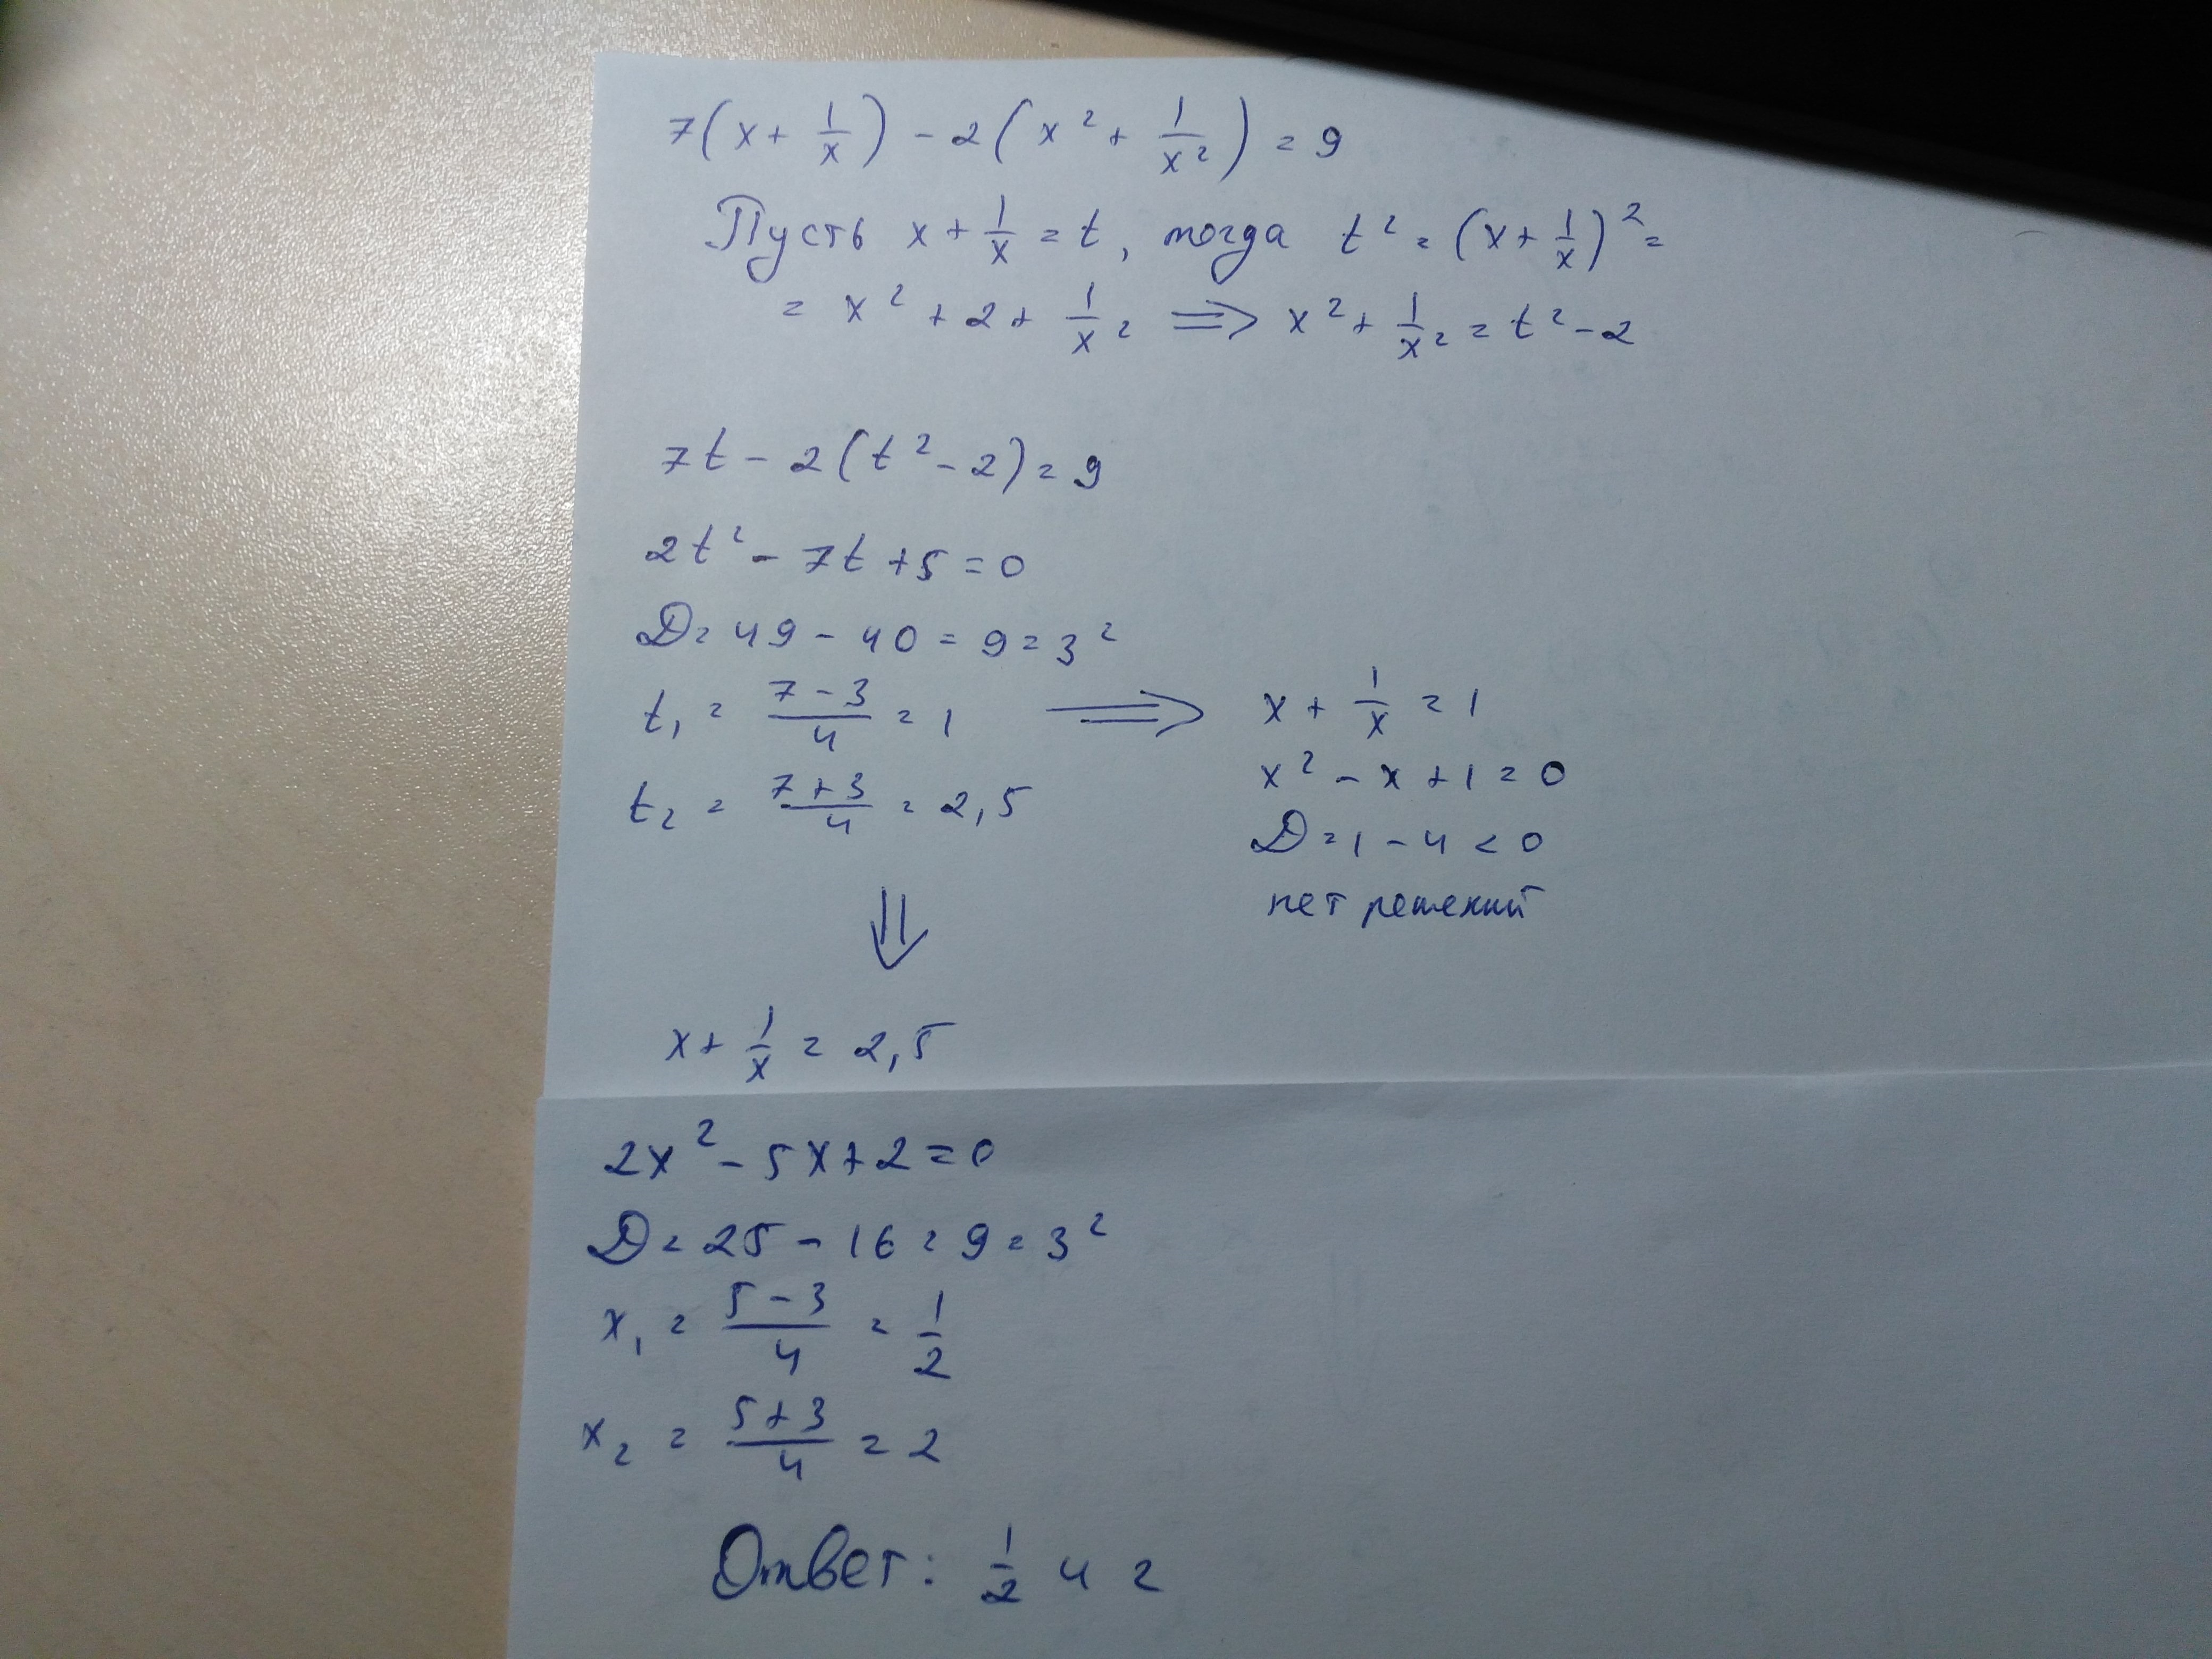 7(x + 1/x) - 2(x² + 1/x²) = 9
Пусть x + 1/x = t, тогда t² = (x + 1/x)² =
= x² + 2 + 1/x² ⟹ x² + 1/x² = t² - 2
7t - 2(t² - 2) = 9
2t² - 7t + 5 = 0
D = 49 - 40 = 9 = 3²
t₁ = (7 - 3)/4 = 1 ⟹ x + 1/x = 1
x² - x + 1 = 0
t₂ = (7 + 3)/4 = 2,5
D = 1 - 4 < 0
нет решений
⇓
x + 1/x = 2,5
2x² - 5x + 2 = 0
D = 25 - 16 = 9 = 3²
x₁ = (5 - 3)/4 = 1/2
x₂ = (5 + 3)/4 = 2
Ответ: 1/2 и 2